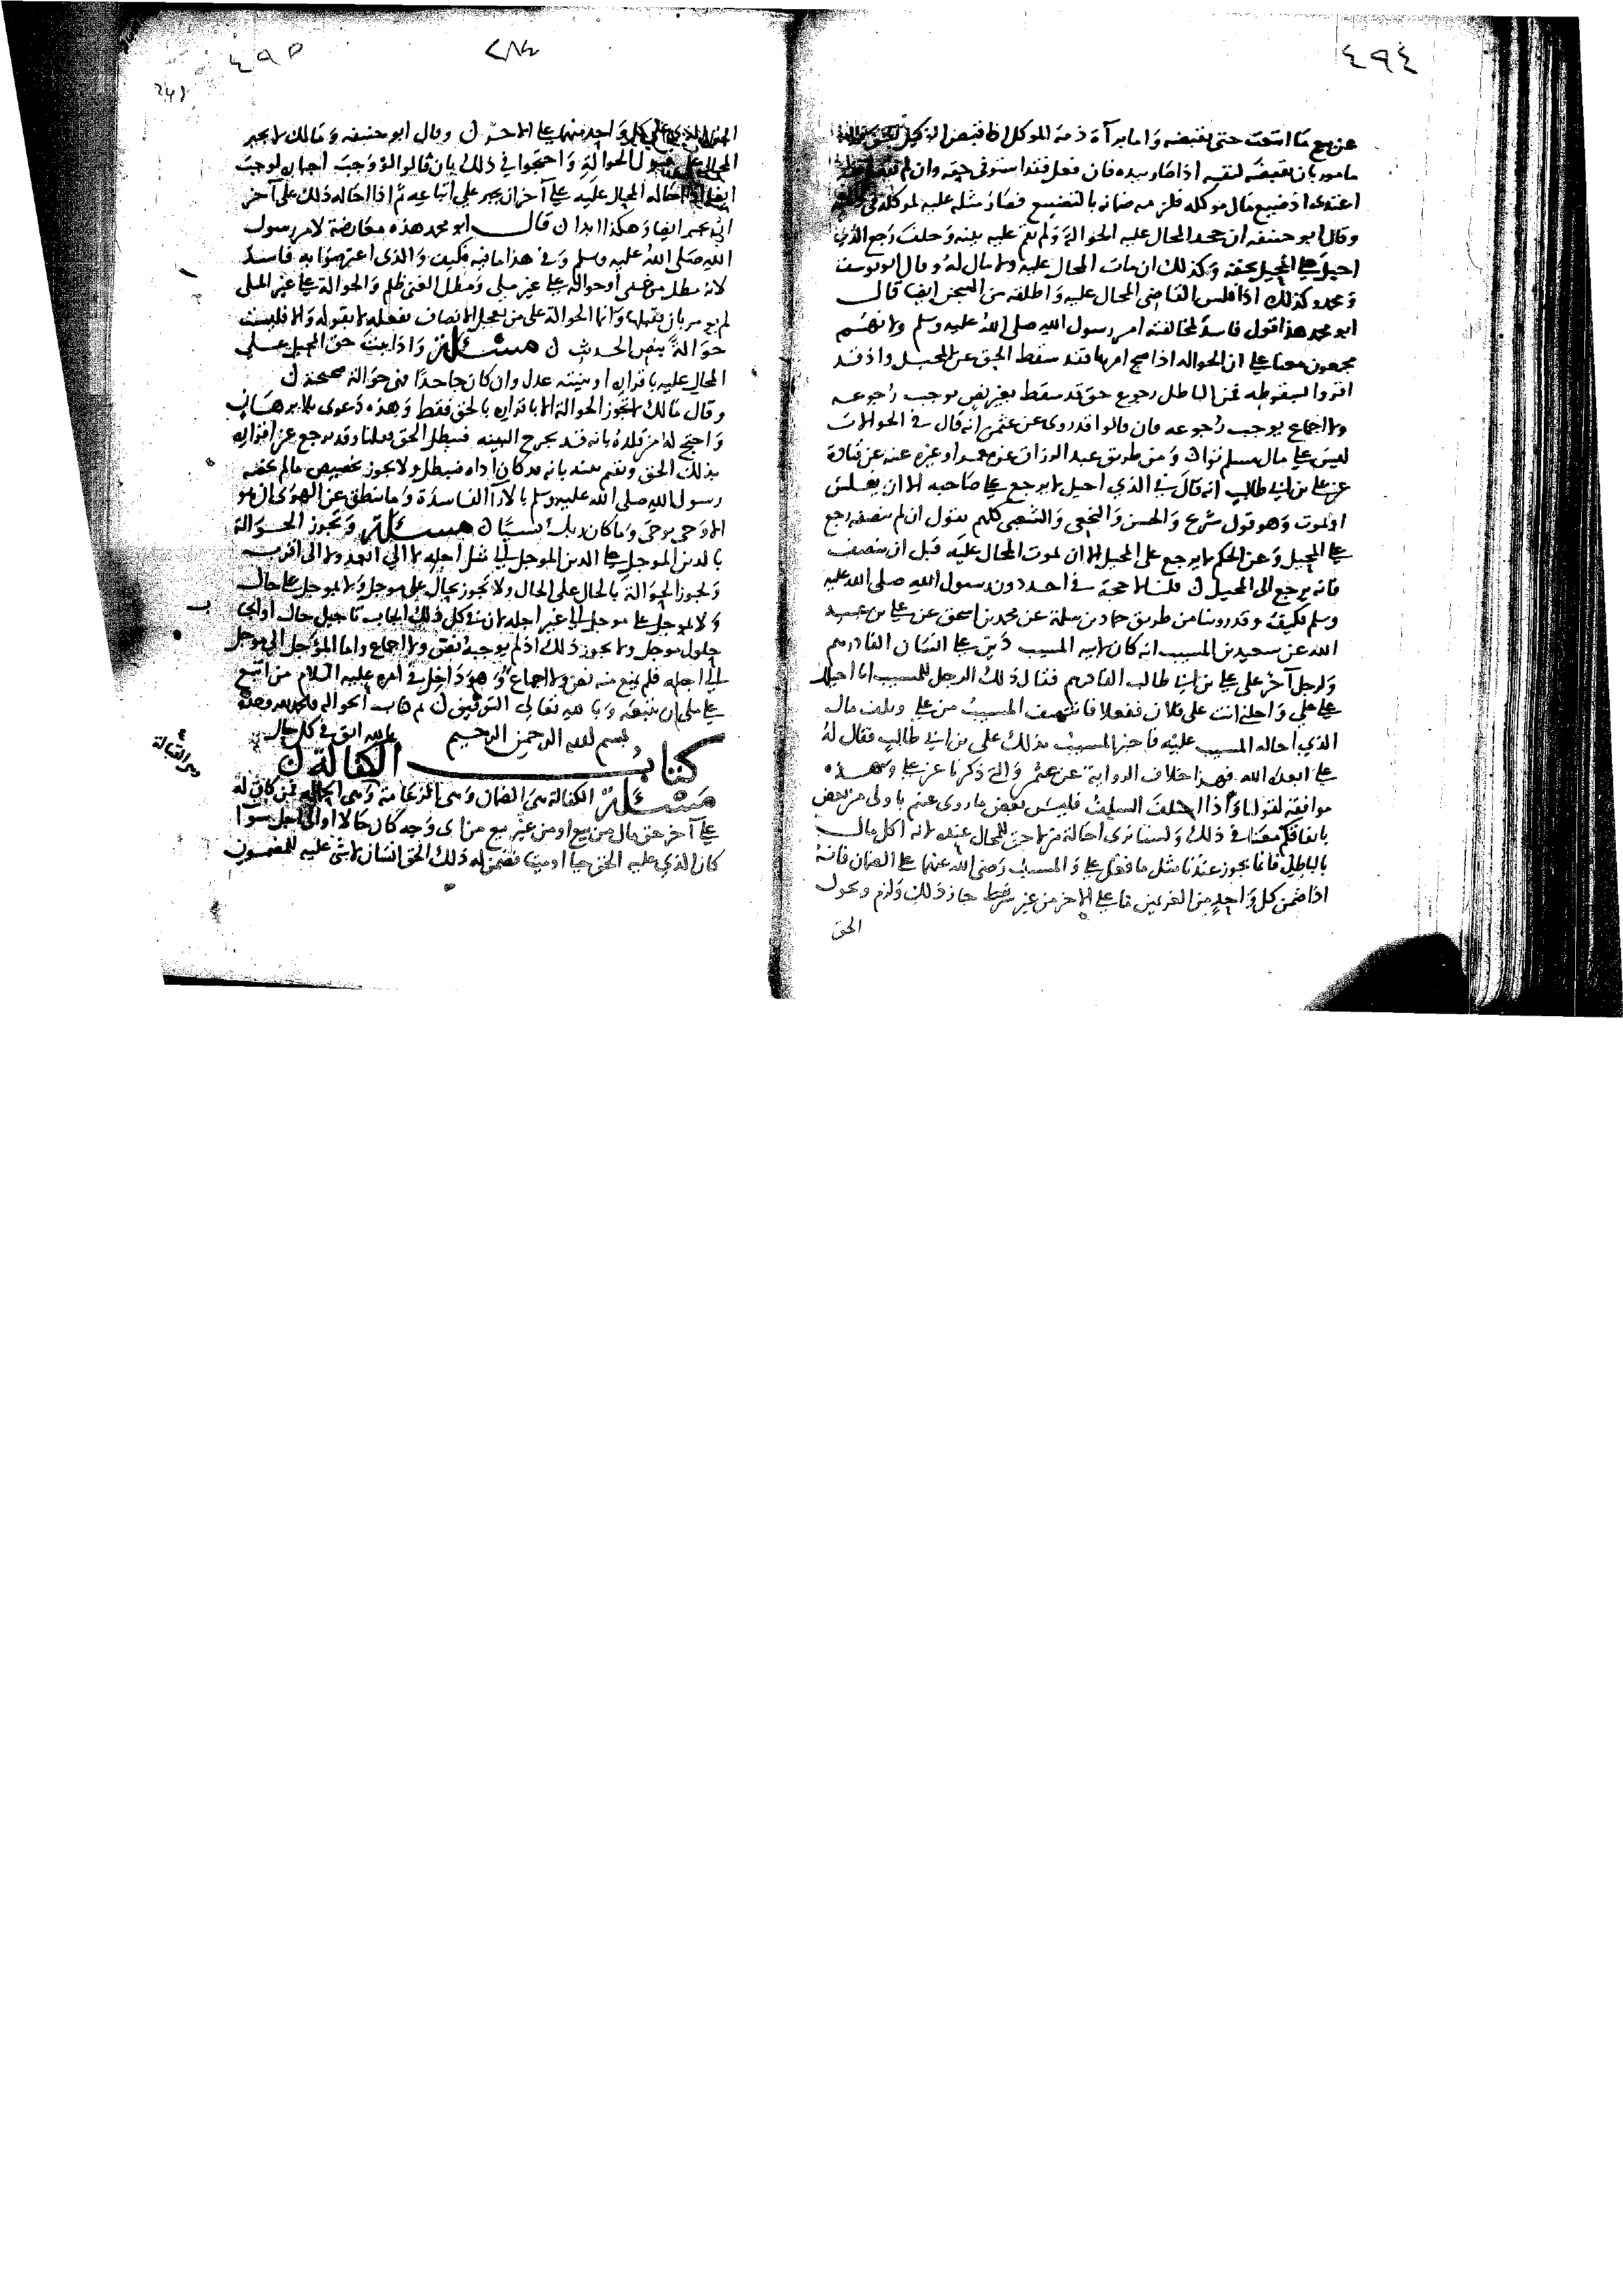 ٤٩٤
عن بيع ما ابتعت حتى تقبضه وأما براءة ذمة الموكل إذا قبض الوكيل
مامور بان يقبضه لنفسه اذا صار بيده فان فعل فقد استوفى حقه وان لم
اعتدى اذ ضيع مال موكله فلزمه ضمانه بالتضييع فصار مثله عليه لموكله في
وقال ابو حنيفه ان جحد المحال عليه الحوالة ولم تقم عليه بينه وحلف رجع الذي
احيل على المحيل بحقه وكذلك ان مات المحال عليه ولا مال له وقال ابو يوسف
ومحمد وكذلك اذا فلس القاضي المحال عليه واطلقه من السجن ايضا قال
ابو محمد هذا قول فاسد لمخالفته امر رسول الله صلى الله عليه وسلم ولانهم
مجمعون معنا على ان الحواله اذا صح امرها فقد سقط الحق عن المحيل واذ قد
اقروا بسقوطه فمن الباطل رجوع حق قد سقط بغير نص يوجب رجوعه
ولا اجماع يوجب رجوعه فان قالوا قد روى عن عثمن انه قال في الحوالات
ليس على مال مسلم توا ومن طريق عبد الرزاق عن معمر او غيره عنه عن قتادة
عن علي بن ابي طالب انه قال في الذي احيل لا يرجع على صاحبه الا ان يفلس
او يموت وهو قول شريح والحسن والنخعي والشعبي كلهم يقول ان لم ينصفه رجع
على المحيل وعن الحكم لا يرجع على المحيل الا ان يموت المحال عليه قبل ان ينصف
فانه يرجع الى المحيل قلنا لا حجة في احد دون رسول الله صلى الله عليه
وسلم فكيف وقد روينا من طريق حماد بن سلمة عن محمد بن اسحق عن علي بن عبيد
الله عن سعيد بن المسيب انه كان لابيه المسيب دين على انسان الفا درهم
ولرجل آخر على علي بن ابي طالب الفا درهم فقال ذلك الرجل للمسيب انا احيلك
على علي واحلني انت على فلان ففعلا فانتصف المسيب من علي وتلف مال
الذي احاله المسيب عليه فاخبر المسيب بذلك علي بن ابي طالب فقال له
علي ابعده الله فهذا خلاف الرواية عن عثمن والتي ذكرنا عن علي وهذه
موافقه لقولنا واذا اختلف السلف فليس بعض ما روى عنهم باولى من بعض
بالباطل فانما يجوز عندنا مثل ما فعل علي والمسيب رضي الله عنهما على الضمان فانه
اذا ضمن كل واحد من الغريمين ما على الاخر من غير شرط جاز ذلك ولزم وتحول
الحق
٤٩٥
الحق الذي على كل واحد منهما على الاخر وقال ابو حنيفه ومالك لا يجبر
المحال على قبول الحوالة واحتجوا في ذلك بان قالوا لو وجب اجباره لوجب
ايضا اذا احاله المحال عليه على آخر ان يجبر على اتباعه ثم اذا احاله ذلك على آخر
ان يجبر ايضا وهكذا ابدا قال ابو محمد هذه معارضة لامر رسول
الله صلى الله عليه وسلم وفي هذا ما فيه فكيف والذي اعترضوا به فاسد
لانه مطل من غني او حوالة على غير ملي ومطل الغني ظلم والحوالة على غير الملي
لم يومر بان يقبلها وانما الحوالة على من يعجل الانصاف بفعله لا بقوله والا فليست
حوالة بنص الحديث مسئلة واذا يثبت حق المحيل على
المحال عليه باقراره او ببينته عدل وان كان جاحدا فهي حوالة صحيحة
وقال مالك لا تجوز الحوالة الا باقراره بالحق فقط وهذه دعوى بلا برهان
واحتج له من قلده بانه قد يجرح البينه فيبطل الحق قلنا وقد يرجع عن اقراره
بذلك الحق وتقوم بينه بانه قد كان اداه فيبطل ولا يجوز تخصيص ما لم يخصه
رسول الله صلى الله عليه وسلم بالآراء الفاسدة وما ينطق عن الهوى ان هو
الا وحي يوحى وما كان ربك نسيا مسئلة وتجوز الحوالة
بالدين المؤجل على الدين المؤجل الى مثل اجله لا الى ابعد ولا الى اقرب
وتجوز الحوالة بالحال على الحال ولا تجوز بحال على مؤجل ولا بمؤجل على حال
ولا بمؤجل على مؤجل الى غير اجله لان في كل ذلك ايجاب تاجيل حال او ايجاب
حلول مؤجل ولا يجوز ذلك اذ لم يوجبه نص ولا اجماع واما المؤجل الى مؤجل
الى اجله فلم يمنع منه نص ولا اجماع وهو داخل في امره عليه السلام من اتبع
على ملي ان يتبعه وبالله تعالى التوفيق تم كتاب الحوالة
بسم الله الرحمن الرحيم
كتاب الكفالة
مسئلة الكفالة هي الضمان وهي الزعامة وهي الحمالة فمن كان له
على آخر حق مال من بيع او من غير بيع من اي وجه كان حالا او الى اجل سواء
كان الذي عليه الحق حيا او ميتا فضمن له ذلك الحق انسان لا شيء عليه للمضمون